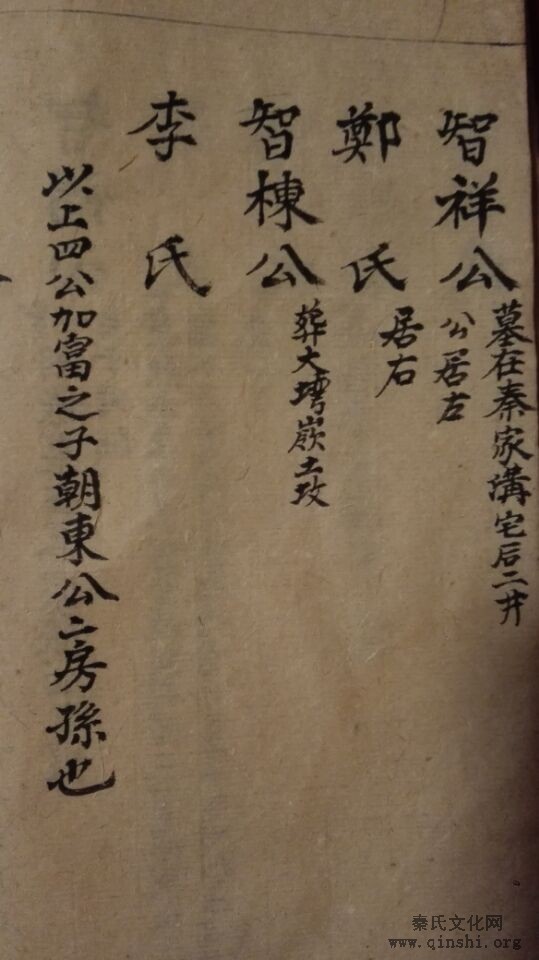 智祥公
墓在秦家溝宅后二井
公居左
鄭氏
居右
智棟公
葬大塆嶺土坟
李氏
以上四公加富之子朝東公二房孫也
秦氏文化网
www.qinshi.org